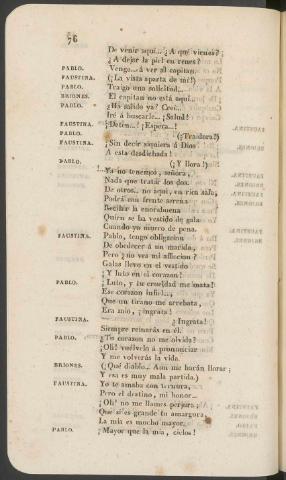 76
De venir aquí... ¿A qué vienes?;
¿A dejar la piel en renes?
PABLO. Vengo...á ver al capitan.
FAUSTINA. (¡La vista aparta de mí!)
PABLO. Traigo una solicitud...
BRIONES. El capitan no está aquí...
PABLO. ¿Ha salido ya? Creí...
Iré á buscarle... ¡Salud!
FAUSTINA. ¡Deten...! ¡Espera...!
PABLO. (¡Traidora!)
FAUSTINA. ¡Sin decir siquiera á Dios
A esta desdichada!
PABLO. (¡Y llora!)
Ya no tenemos, señora,
Nada que tratar los dos.
De otros.. no aquí, en rica sala,
Podrá esa frente serena
Recibir la enorabuena
Quien se ha vestido de gala
Cuando yo muero de pena.
FAUSTINA. Pablo, tengo obligacion
De obedecer á un marido,
Pero ¿no vea mi afliccion?
Galas llevo en el vestido
¡Y luto en el corazon!
PABLO. ¡Luto, y tu crueldad me mata!
Ese corazon infiel...,
Que un tirano me arrebata,
Era mio, ¡ingrata!
FAUSTINA. ¡Ingrata!
Siempre reinarás en él.
PABLO. ¿Tu corazon no me olvida?
¡Oh! vuélvelo á pronunciar
Y me volverás la vida.
BRIONES. (¡Qué diablo.. Aun me harán llorar;
Y esa es muy mala partida.)
FAUSTINA. Yo te amaba con ternura,
Pero el destino, mi honor...
¡Oh! no me llames perjura;
Que si es grande tu amargura,
La mia es mucho mayor.
PABLO. ¡Mayor que la mia, cielos!